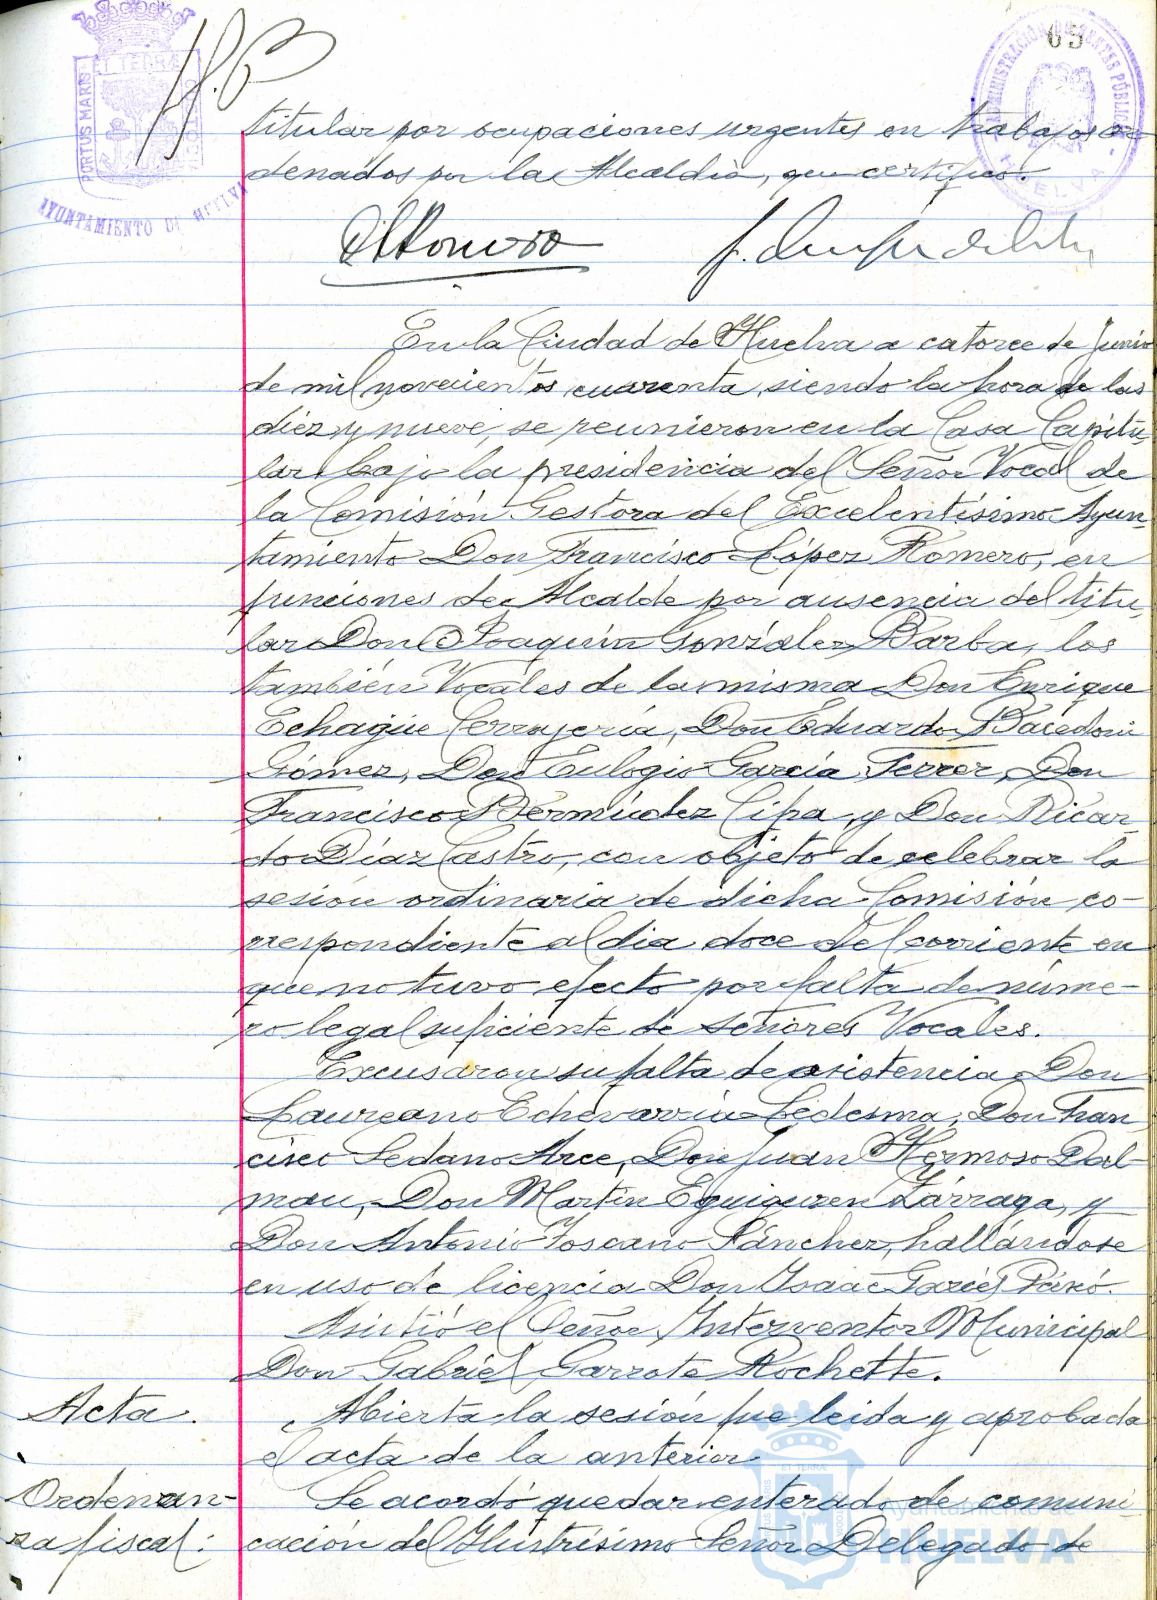 65
ET TERRÆ
PORTUS MARIS
AYUNTAMIENTO DE HUELVA
ADMINISTRACION DE RENTAS PÚBLICAS
HUELVA
titular por ocupaciones urgentes en trabajos or-
denados por la Alcaldía, que certifico.
En la Ciudad de Huelva a catorce de Junio
de mil novecientos cuarenta, siendo la hora de las
diez y nueve, se reunieron en la Casa Capitu-
lar bajo la presidencia del Señor Vocal de
la Comisión Gestora del Excelentísimo Ayun-
tamiento Don Francisco López Romero, en
funciones de Alcalde por ausencia del titu-
lar Don Joaquín González Barba, los
también Vocales de la misma Don Enrique
Echagüe Cerrajería, Don Eduardo Bacedoni
Gómez, Don Eulogio García Ferrer, Don
Francisco Bermúdez Cipa, y Don Ricar-
do Díaz Castro, con objeto de celebrar la
sesión ordinaria de dicha Comisión co-
rrespondiente al dia doce del corriente en
que no tuvo efecto por falta de núme-
ro legal suficiente de Señores Vocales.
Excusaron su falta de asistencia Don
Laureano Echevarría Ledesma, Don Fran
cisco Sedano Arce, Don Juan Hermoso Dal-
mau, Don Martín Eguiguren Lárraga, y
Don Antonio Toscano Sánchez, hallándose
en uso de licencia Don Isaac
Asistió el Señor Interventor Municipal
Don Gabriel Garrote Rochette.
Acta. Abierta la sesión fue leida y aprobada
el acta de la anterior.
Ordenan- Se acordó quedar enterado de comuni-
za fiscal: cación del Ilustrísimo Señor Delegado de
Ayuntamiento de
HUELVA